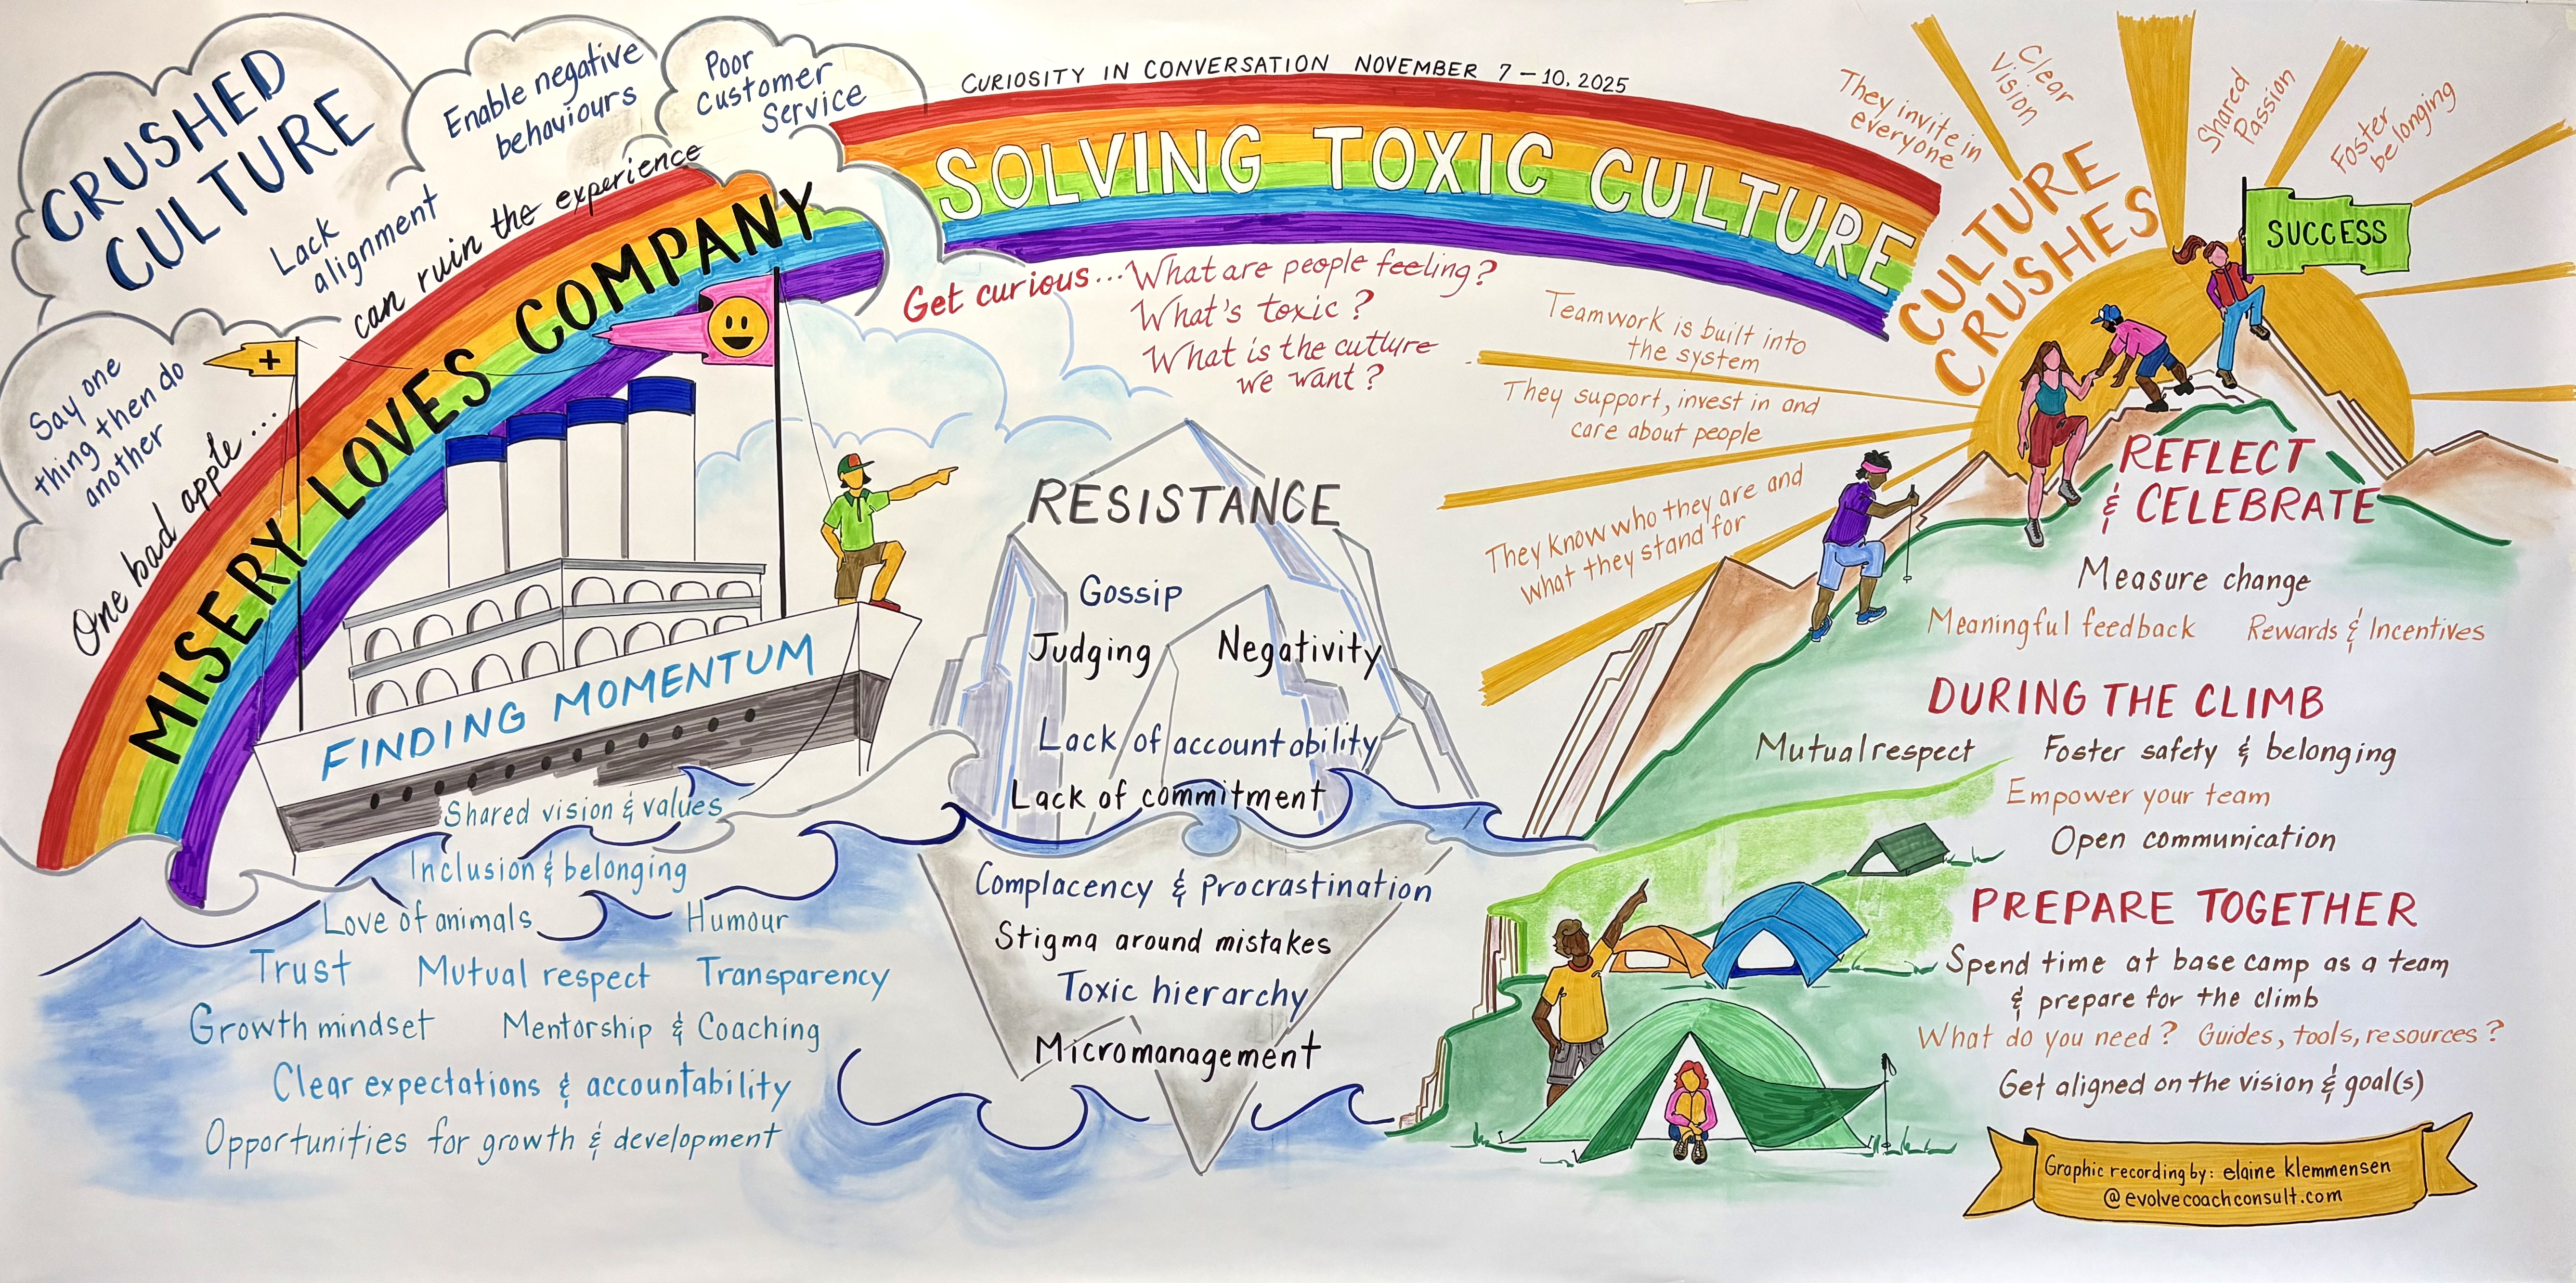 CRUSHED
CULTURE
Enable negative
behaviours
Poor
customer
Service
Lack
alignment
Say one
thing then do
another
One bad apple...
can ruin the experience
MISERY LOVES COMPANY
+
FINDING MOMENTUM
Shared vision & values
Inclusion & belonging
Love of animals
Humour
Trust
Mutual respect
Transparency
Growth mindset
Mentorship & Coaching
Clear expectations & accountability
Opportunities for growth & development
CURIOSITY IN CONVERSATION NOVEMBER 7-10, 2025
SOLVING TOXIC CULTURE
Get curious... What are people feeling?
What's toxic?
What is the cutlure
we want?
RESISTANCE
Gossip
Judging
Negativity
Lack of accountability
Lack of commitment
Complacency & Procrastination
Stigma around mistakes
Toxic hierarchy
Micromanagement
CULTURE
CRUSHES
They invite in
everyone
Clear
Vision
Shared
Passion
Foster
belonging
Teamwork is built into
the system
They support, invest in and
care about people
They know who they are and
what they stand for
SUCCESS
REFLECT
& CELEBRATE
Measure change
Meaningful feedback
Rewards & Incentives
DURING THE CLIMB
Mutual respect
Foster safety & belonging
Empower your team
Open communication
PREPARE TOGETHER
Spend time at base camp as a team
& prepare for the climb
What do you need? Guides, tools, resources?
Get aligned on the vision & goal(s)
Graphic recording by: elaine klemmensen
@evolvecoachconsult.com